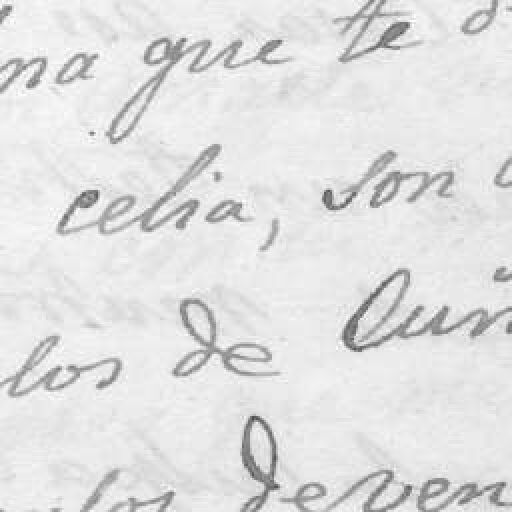 na que te
celia, son
los de
los deven